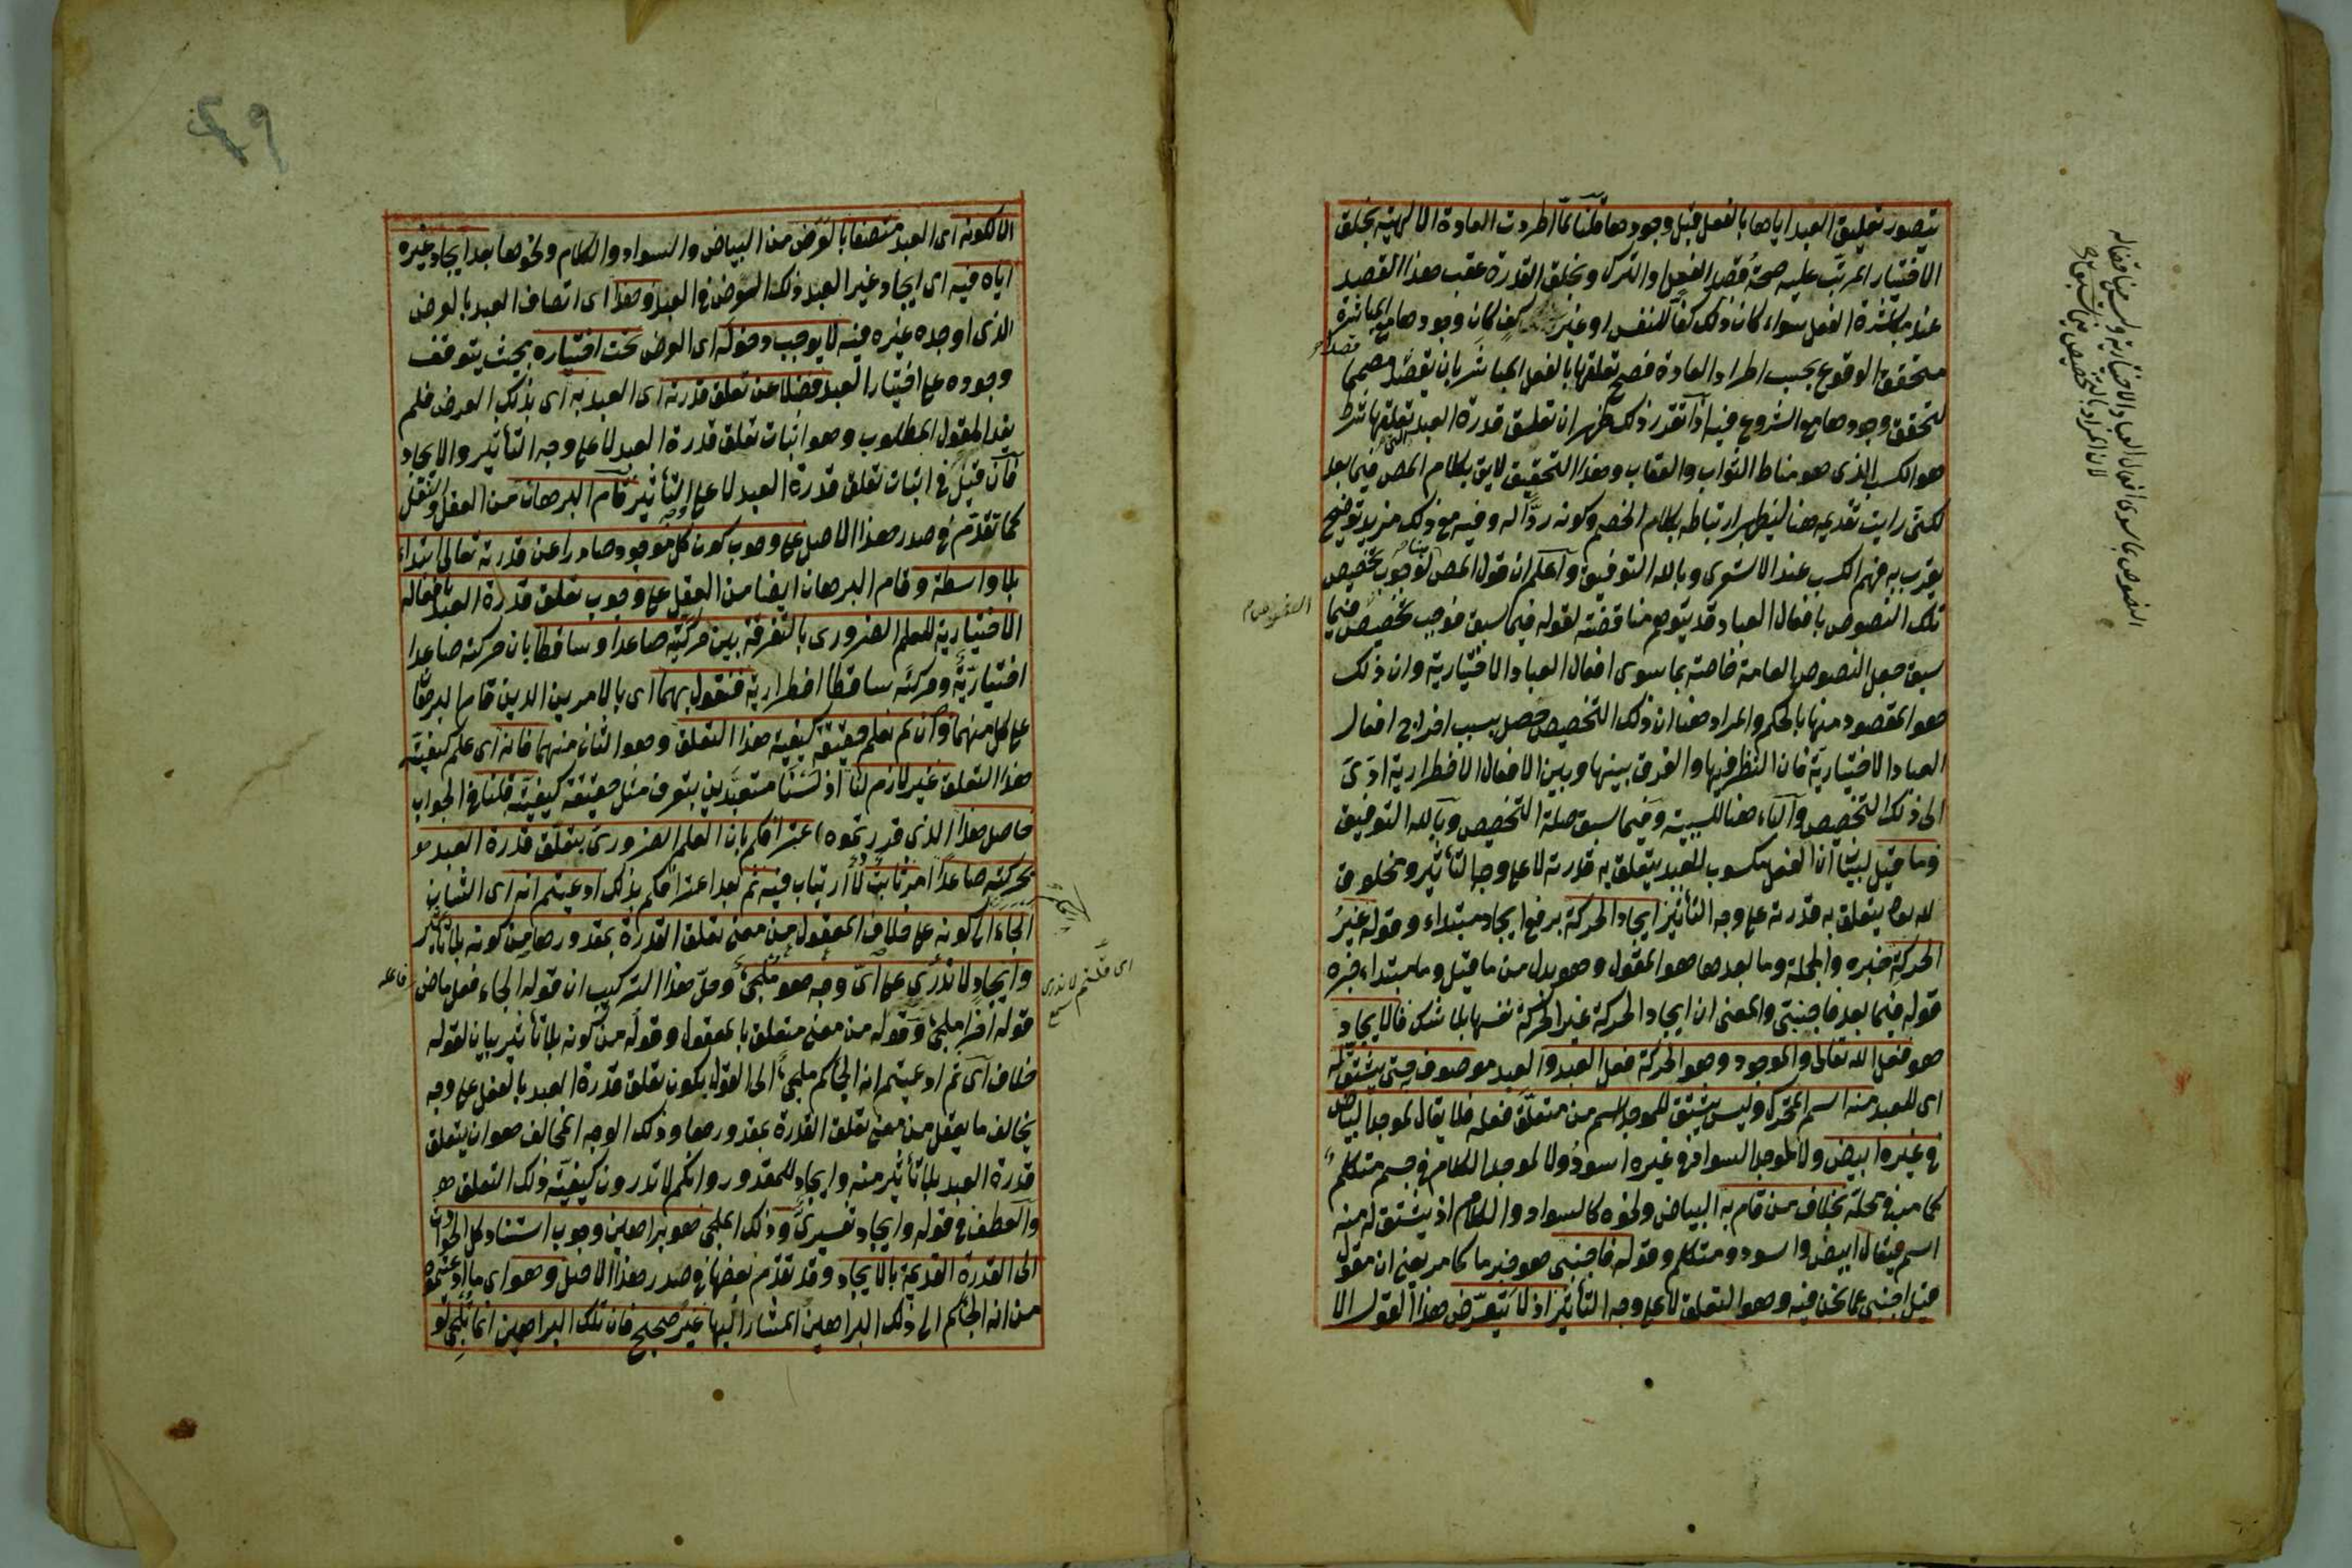 يتصور تعليق العبد اياها بالفعل قبل وجودها قلنا لما اطردت العادة الالهية بخلق
الاختيار المرتب عليه صحة قصد الفعل او الترك وبخلق القدرة عقب هذا القصد
عند مباشرة الفعل سواء كان ذلك كفا للنفس او غير كف كان وجودها مع المباشرة
متحقق الوقوع بحسب اطراد العادة فصح تعلقها بالفعل المباشر بان يقصد قصدا مصمما
لتحقق وجودها مع الشروع فيه اذا تقرر ذلك ظهر ان تعلق قدرة العبد التي تعلقها شرط
هو الكسب الذى هو مناط الثواب والعقاب وهذا التحقيق لايق بكلام المص فيما بعد
لكنى رايت تقديمه هنا ليظهر ارتباطه بكلام الخصم وكونه ردا له وفيه مع ذلك مزيد توضيح
يقرب به فهم الكسب عند الاشعرى وبالله التوفيق واعلم ان قول المص لوجوب تخصيص
تلك النصوص بافعال العباد قد يتوهم مناقضته لقوله فيما سبق فوجب تخصيص فيما
سبق جعل النصوص العامة خاصة بما سوى افعال العباد الاختيارية وان ذلك
هو المقصود منها بالحكم والمراد هنا ان ذلك التخصيص حصل بسبب اخراج افعال
العباد الاختيارية فان النظر فيها والفرق بينها وبين الافعال الاضطرارية ادى
الى ذلك التخصيص والباء هنا للسببية وفيما سبق صلة التخصيص وبالله التوفيق
وما قيل لبيان ان الفعل مكسوب للعبد يتعلق به قدرته لا على وجه التأثير ومخلوق
لله تعالى يتعلق به قدرته على وجه التأثير ايجاد الحركة برفع ايجاد مبتداء وقوله غير
الحركة خبره والجملة وما بعدها هو المقول وهو بدل من ما قيل وما مبتداء خبره
قوله فيما بعد فاجنبى والمعنى ان ايجاد الحركة غير الحركة نفسها بلا شك فالايجاد
هو فعل الله تعالى والموجود وهو الحركة فعل العبد والعبد موصوف به حتى يشتق له
اى للعبد منه اسم المتحرك وليس يشتق للموجد اسم من متعلق فعله فلا يقال لموجد البياض
فى غيره ابيض ولا لموجد السواد فى غيره اسود ولا لموجد الكلام فى جسم متكلم
كما مر فى محله بخلاف من قام به البياض ونحوه كالسواد والكلام اذ يشتق له منه
اسم فيقال ابيض واسود ومتكلم وقوله فاجنبى هو خبر ما كما مر يعنى ان مقول
قيل اجنبى عما نحن فيه وهو التعلق لا على وجه التأثير اذ لا يتعرض هذا القول الا
النصوص بما سوى افعال العباد الاختيارية
لان المراد بالتخصيص فيما سبق
٤٩
الا لكونه اى العبد متصفا بالعرض من البياض والسواد والكلام ونحوها بعد ايجاد غيره
اياه فيه اى ايجاد غير العبد ذلك العرض فى العبد وهذا اى اتصاف العبد بالعرض
الذى اوجده غيره فيه لا يوجب دخوله اى العرض تحت اختياره بحيث يتوقف
وجوده على اختيار العبد فضلا عن تعلق قدرته اى العبد به اى بذلك العرض فلم
يفد المقول المطلوب وهو اثبات تعلق قدرة العبد لا على وجه التأثير والايجاد
فان قيل فى اثبات تعلق قدرة العبد لا على وجه التأثير قام البرهان من العقل والنقل
كما تقدم فى صدر هذا الاصل على وجوب كون كل موجود صادرا عن قدرته تعالى ابتداء
بلا واسطة وقام البرهان ايضا من العقل على وجوب تعلق قدرة العبد بافعاله
الاختيارية للعلم الضرورى بالتفرقة بين حركتيه صاعدا وساقطا بان حركته صاعدا
اختيارية وحركته ساقطا اضطرارية فنقول بهما اى بالامرين الذين قام البرهان
على كل منهما وان لم نعلم حقيقة كيفية هذا التعلق وهو الثانى منهما فانه اى علم كيفية
هذا التعلق غير لازم لنا اذ لسنا متعبدين بتعرف مثل حقيقة كيفيته قلنا فى الجواب
حاصل هذا الذى قررتموه اعترافكم بان العلم الضرورى بتعلق قدرة العبد
بحركته صاعدا امر ثابت لا ارتياب فيه ثم بعد اعترافكم بذلك ادعيتم انه اى الشان
الجاء الى كونه على خلاف المعقول من معنى تعلق القدرة بمقدورها من كونه بلا تأثير
وايجاد لا ندرى على اى وجه هو ملجئ وحل هذا التركيب ان قوله الجاء فعل ماض فاعله
قوله اخرا ملجئ وقوله من معنى متعلق بالمعقول وقوله من كونه بلا تأثير بيان لقوله
خلاف اى ثم ادعيتم انه الجاكم ملجئ الى القول بكون تعلق قدرة العبد بالفعل على وجه
يخالف ما يعقل من معنى تعلق القدرة بمقدورها وذلك الوجه المخالف هو ان يتعلق
قدرة العبد بلا تأثير منه وايجاد للمقدور وانكم لا تدرون كيفية ذلك التعلق
والعطف فى قوله وايجاد تفسيرى وذلك الملجئ هو براهين وجوب استناد كل الحوادث
الى القدرة القديمة بالايجاد وقد تقدم بعضها فى صدر هذا الاصل وهو اى ما ادعيتموه
من انه الجاكم الى ذلك البراهين المشار اليها غير صحيح فان تلك البراهين انما تلجئ لو
اى قلتم لا ندرى